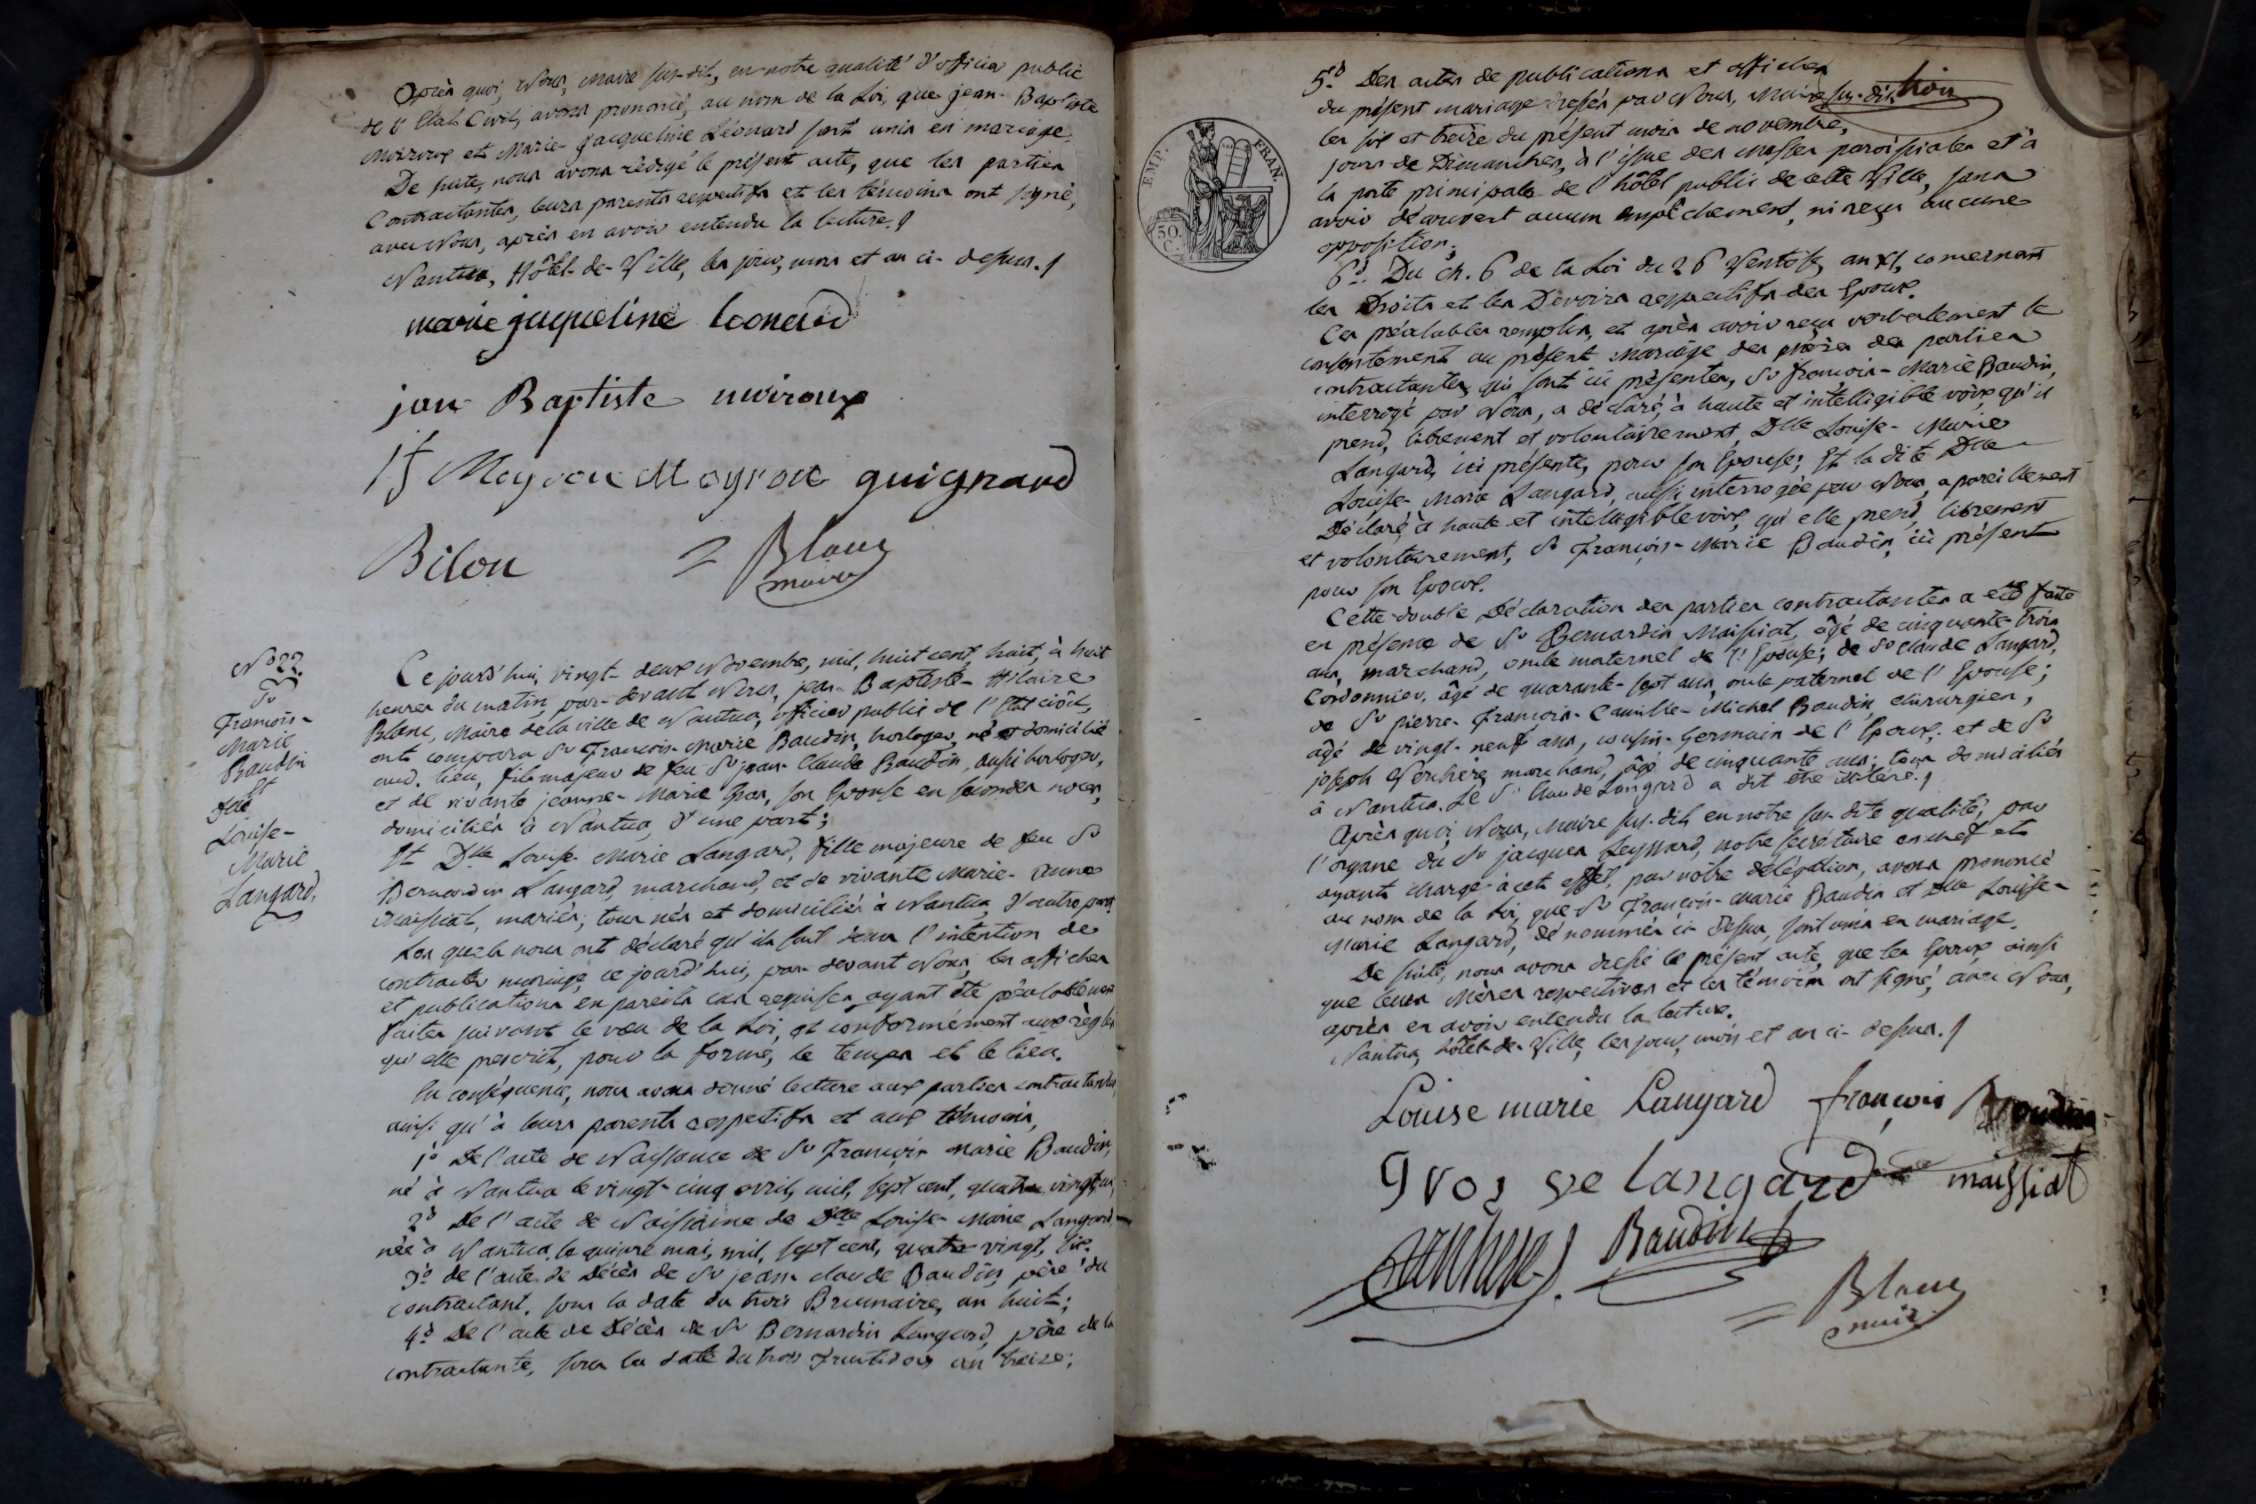 Après quoi, Nous, Maire sus-dit, en notre qualité d'officier public
de l'Etat Civil, avons prononcé, au nom de la Loi, que jean-Baptiste
et Marie-jacqueline Léonard sont unis en mariage.
De suite, nous avons rédigé le présent acte, que les parties
Contractantes, leurs parents respectifs et les témoins ont signé,
avec Nous, après en avoir entendu la lecture.
Nantua, Hôtel-de-Ville, les jour, mois et an ci-dessus.
marie jaqueline leonard
jan Baptiste miroux
Meyron Moyroux guignard
Bilon Blanc
maire
N° 22.
Sr
François-
Marie
Baudin
Et
Dlle
Louise-
Marie
Langard.
Ce jourd'hui, vingt-deux Novembre, mil, huit cent, huit, à huit
heures du matin, par-devant Nous, jean-Baptiste-Hilaire
Blanc, Maire de la ville de Nantua, officier public de l'Etat civil,
ont comparu Sr François-Marie Baudin, horloger, né et domicilié
aud. lieu, fils majeur de feu Sr jean-Claude Baudin, aussi horloger,
et de vivante jeanne-Marie Gros, son Epouse en secondes noces,
domiciliés à Nantua, d'une part;
Et Dlle Louise-Marie Langard, fille majeure de feu Sr
Bernardin Langard, marchand, et de vivante Marie-Anne
Maissiat, mariés; tous nés et domiciliés à Nantua, d'autre part.
Lesquels nous ont déclaré qu'ils sont dans l'intention de
contracter mariage, ce jourd'hui, par-devant Nous, les affiches
et publications en pareils cas requises ayant été préalablement
faites suivant le vœu de la Loi, et conformément aux règles
qu'elle prescrit, pour la forme, le temps et le lieu.
En conséquence, nous avons donné lecture aux parties contractantes,
ainsi qu'à leurs parents respectifs et aux témoins,
1° De l'acte de Naissance de Sr François Marie Baudin,
né à Nantua le vingt-cinq avril, mil, sept cent, quatre vingt, un;
2° De l'acte de Naissance de Dlle Louise-Marie Langard,
née à Nantua, le quinze mai, mil, sept cent, quatre vingt, six.
3° de l'acte de Décès de Sr jean-claude Baudin, père du
contractant, sous la date du trois Brumaire, an huit;
4° De l'acte de Décès de Sr Bernardin Langard, père de la
contractante, sous la date du trois fructidor an treize;
EMP. FRAN.
50.
C.
5° Des actes de publications et affiches
du présent mariage dressés par Nous, Maire sus-dit,
les six et treize du présent mois de novembre,
jours de Dimanches, à l'issue des Messes paroissiales et à
la porte principale de l'hôtel public de cette Ville, sans
avoir découvert aucun empêchement, ni reçu aucune
opposition;
6° Du ch. 6 de la Loi du 26 Ventôse, an XI, concernant
les Droits et les Devoirs respectifs des Epoux.
Ces préalables remplis, et après avoir reçu verbalement le
consentement au présent Mariage des mères des parties
contractantes, qui sont ici présentes, Sr françois-Marie Baudin,
interrogé par Nous, a déclaré, à haute et intelligible voix, qu'il
prend, librement et volontairement, Dlle Louise-Marie
Langard, ici présente, pour son Epouse; Et la dite Dlle
Louise-Marie Langard, aussi interrogée par Nous, a pareillement
Déclaré, à haute et intelligible voix, qu'elle prend, librement
et volontairement, Sr François-Marie Baudin, ici présent
pour son Epoux.
Cette double Déclaration des parties contractantes a été faite
en présence de Sr Bernardin Maissiat, âgé de cinquante-trois
ans, marchand, oncle maternel de l'Epouse; de Sr Claude Langard,
Cordonnier, âgé de quarante-sept ans, oncle paternel de l'Epouse;
de Sr pierre-François-Camille-Michel Baudin, chirurgien,
âgé de vingt-neuf ans, cousin-Germain de l'Epoux; et de Sr
joseph Verchère, marchand, âgé de cinquante ans; tous domiciliés
à Nantua. Le Sr Claude Langard a dit être illitéré.
Après quoi, Nous, Maire sus-dit, en notre sus-dite qualité, par
l'organe du Sr jacques Reynard, notre secrétaire en chef et
ayant charge à cet effet, par nôtre délégation, avons prononcé
au nom de la Loi, que Sr François-Marie Baudin et Dlle Louise-
Marie Langard, dénommés ci-dessus, sont unis en mariage.
De suite, nous avons dressé le présent acte, que les Epoux ainsi
que leurs Mères respectives et les témoins ont signé, avec Nous,
après en avoir entendu la lecture.
Nantua, hôtel-de-Ville, les jour, mois et an ci-dessus.
Louise marie Langard françois Baudin
gros ve langard maissiat
Baudin
Blanc
maire